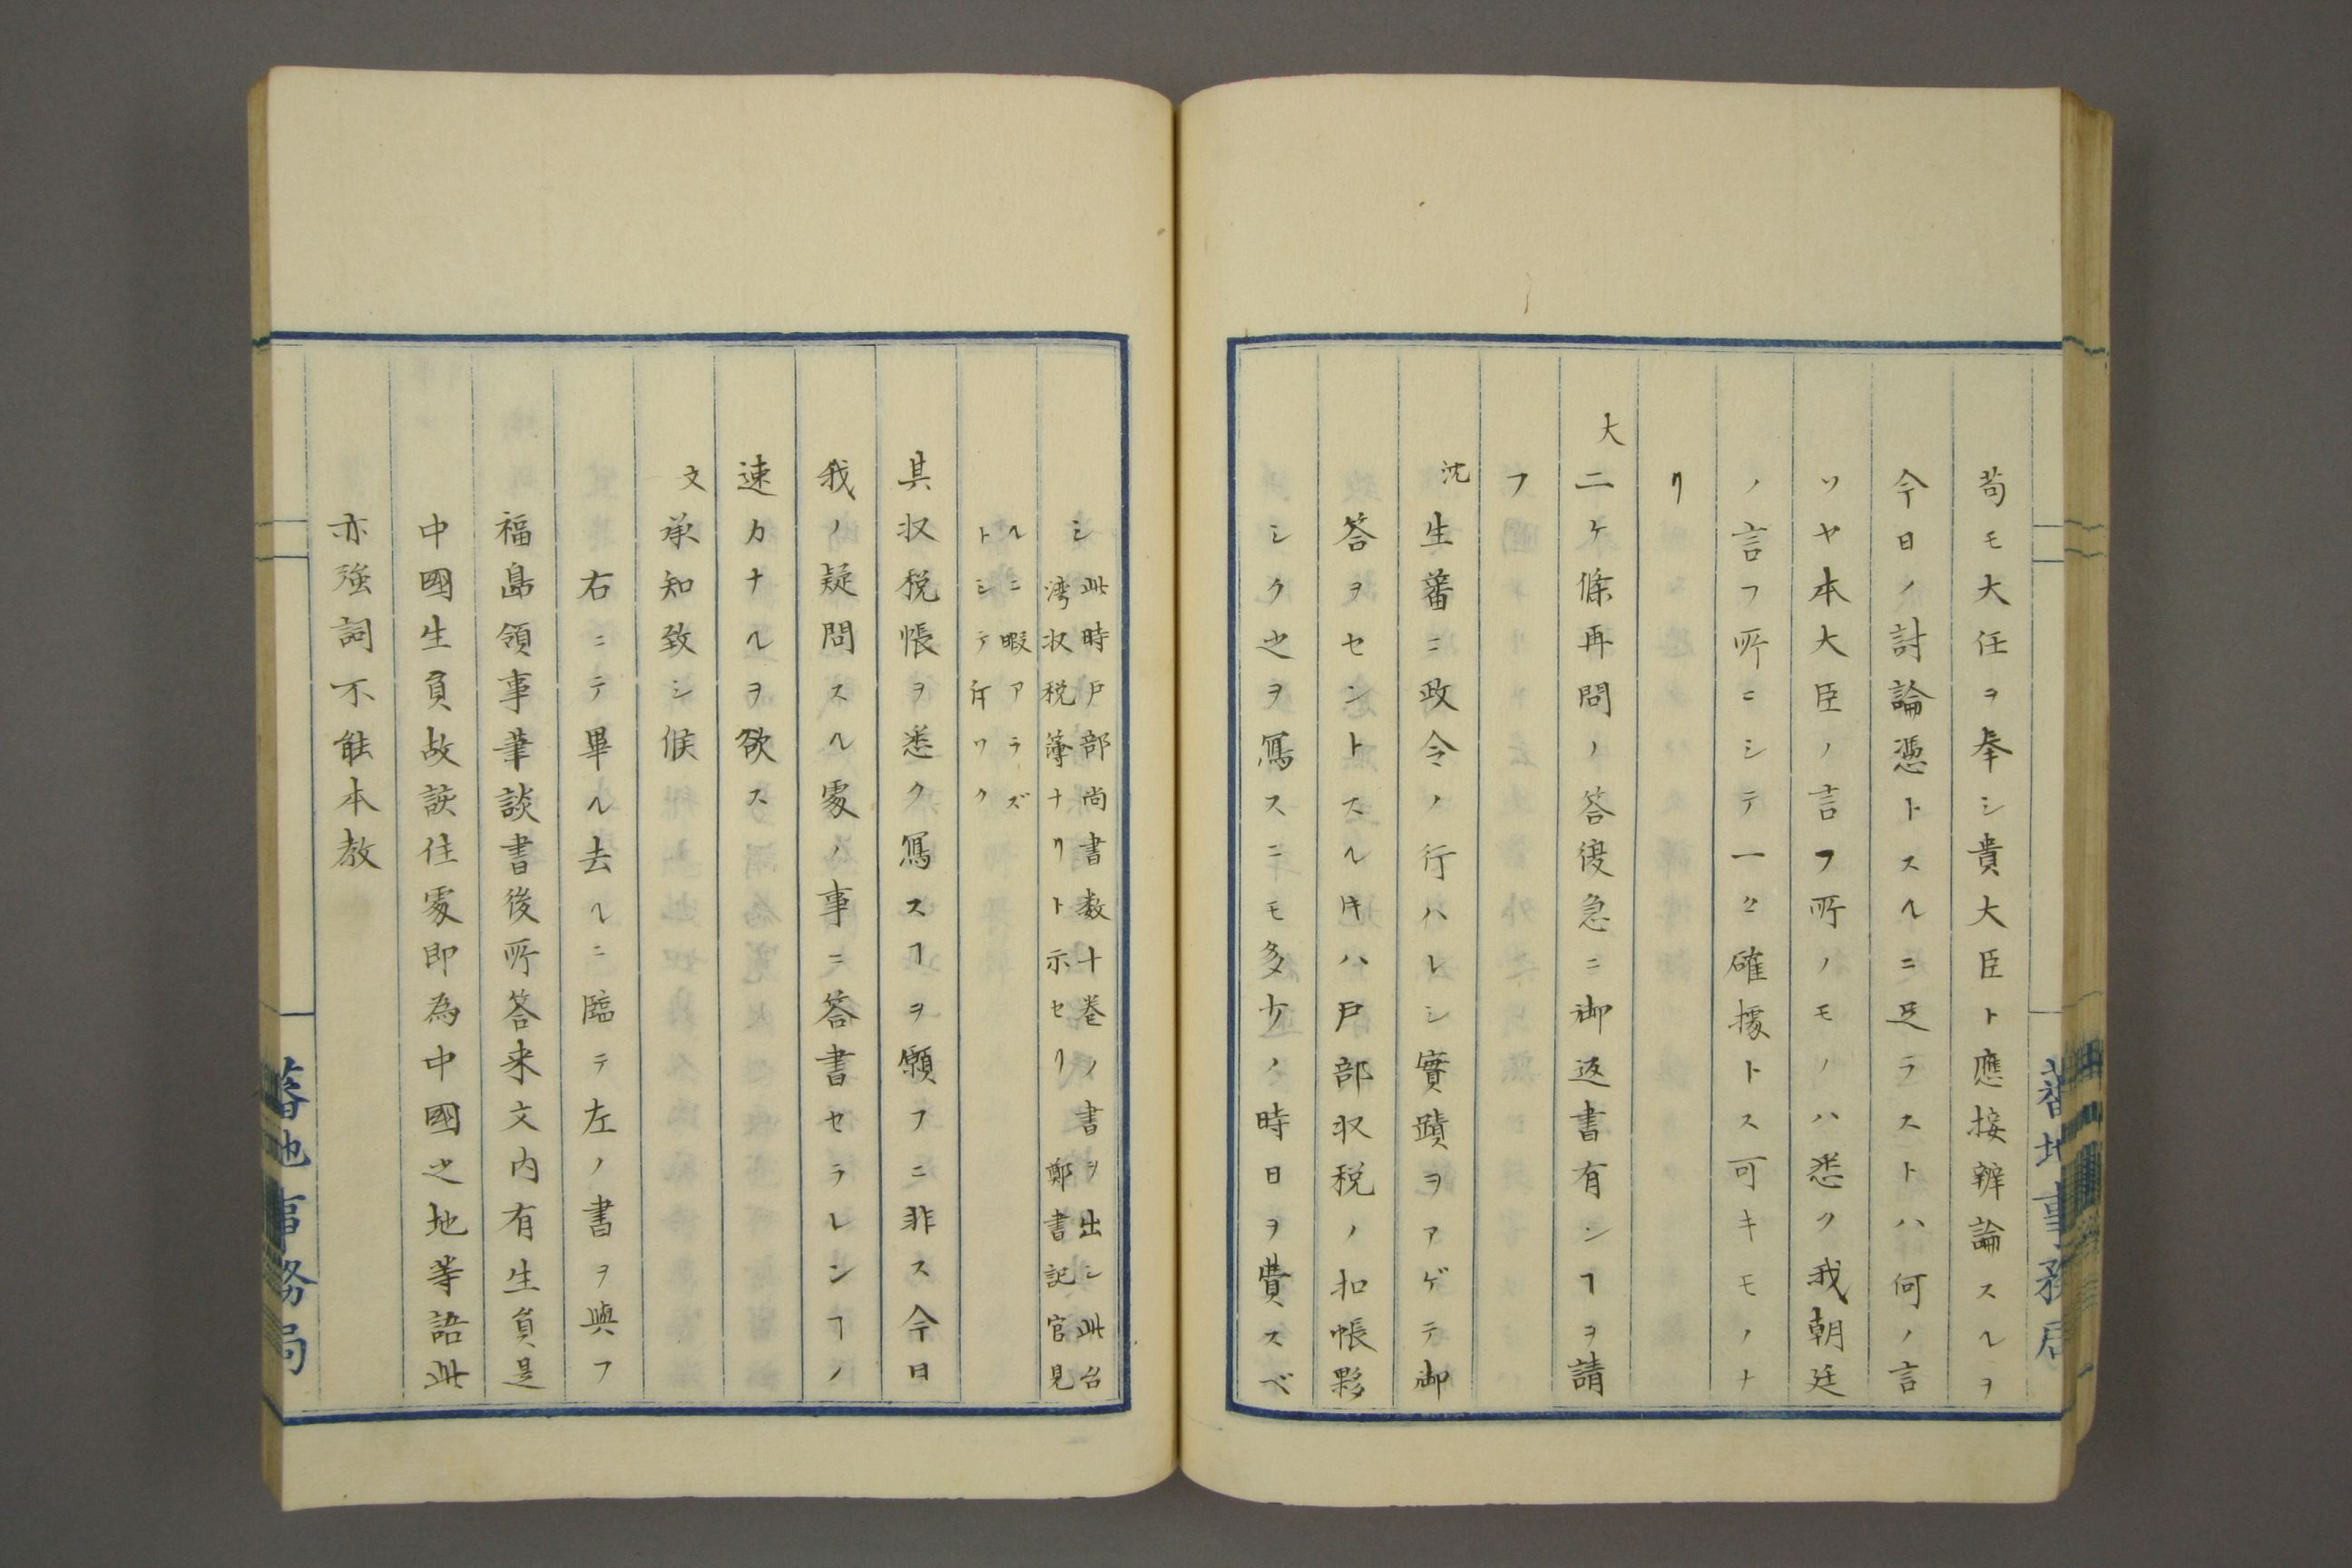 苟モ大任ヲ奉シ貴大臣ト應接辨論スルヲ
今日ノ討論憑トスルニ足ラストハ何ノ言
ソヤ本大臣ノ言フ所ノモノハ悉ク我朝廷
ノ言フ所ニシテ一々確據トス可キモノナ
リ
大
二ケ條再問ノ答復急ニ御返書有ンヿヲ請
フ
沈
生蕃ニ政令ノ行ハレシ實蹟ヲアゲテ御
答ヲセントスル𪜈ハ戸部収税ノ扣帳夥
シク之ヲ寫スニモ多少ノ時日ヲ費スベ
シ
此時戸部尚書数十巻ノ書ヲ出シ此台
湾収税簿ナリト示セリ 鄭書記官見
ルニ暇アラズ
トシテ斥ワク
其収税帳ヲ悉ク寫スヿヲ願フニ非ス今日
我ノ疑問スル處ノ事ニ答書セラレンヿノ
速カナルヲ欲ス
文
承知致シ候
右ニテ畢ル去ルニ臨テ左ノ書ヲ與フ
福島領事筆談書後所答来文内有生員是
中國生員故該住處即為中國之地等語此
亦強詞不能本教
蕃地事務局
蕃地事務局